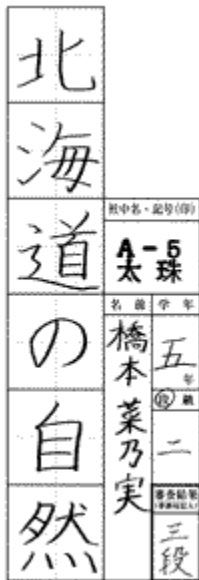 北海道の自然
社中名・記号(印)
A-5
太珠
名前
学年
橋本菜乃実
五年
段級
二
審査結果
三段